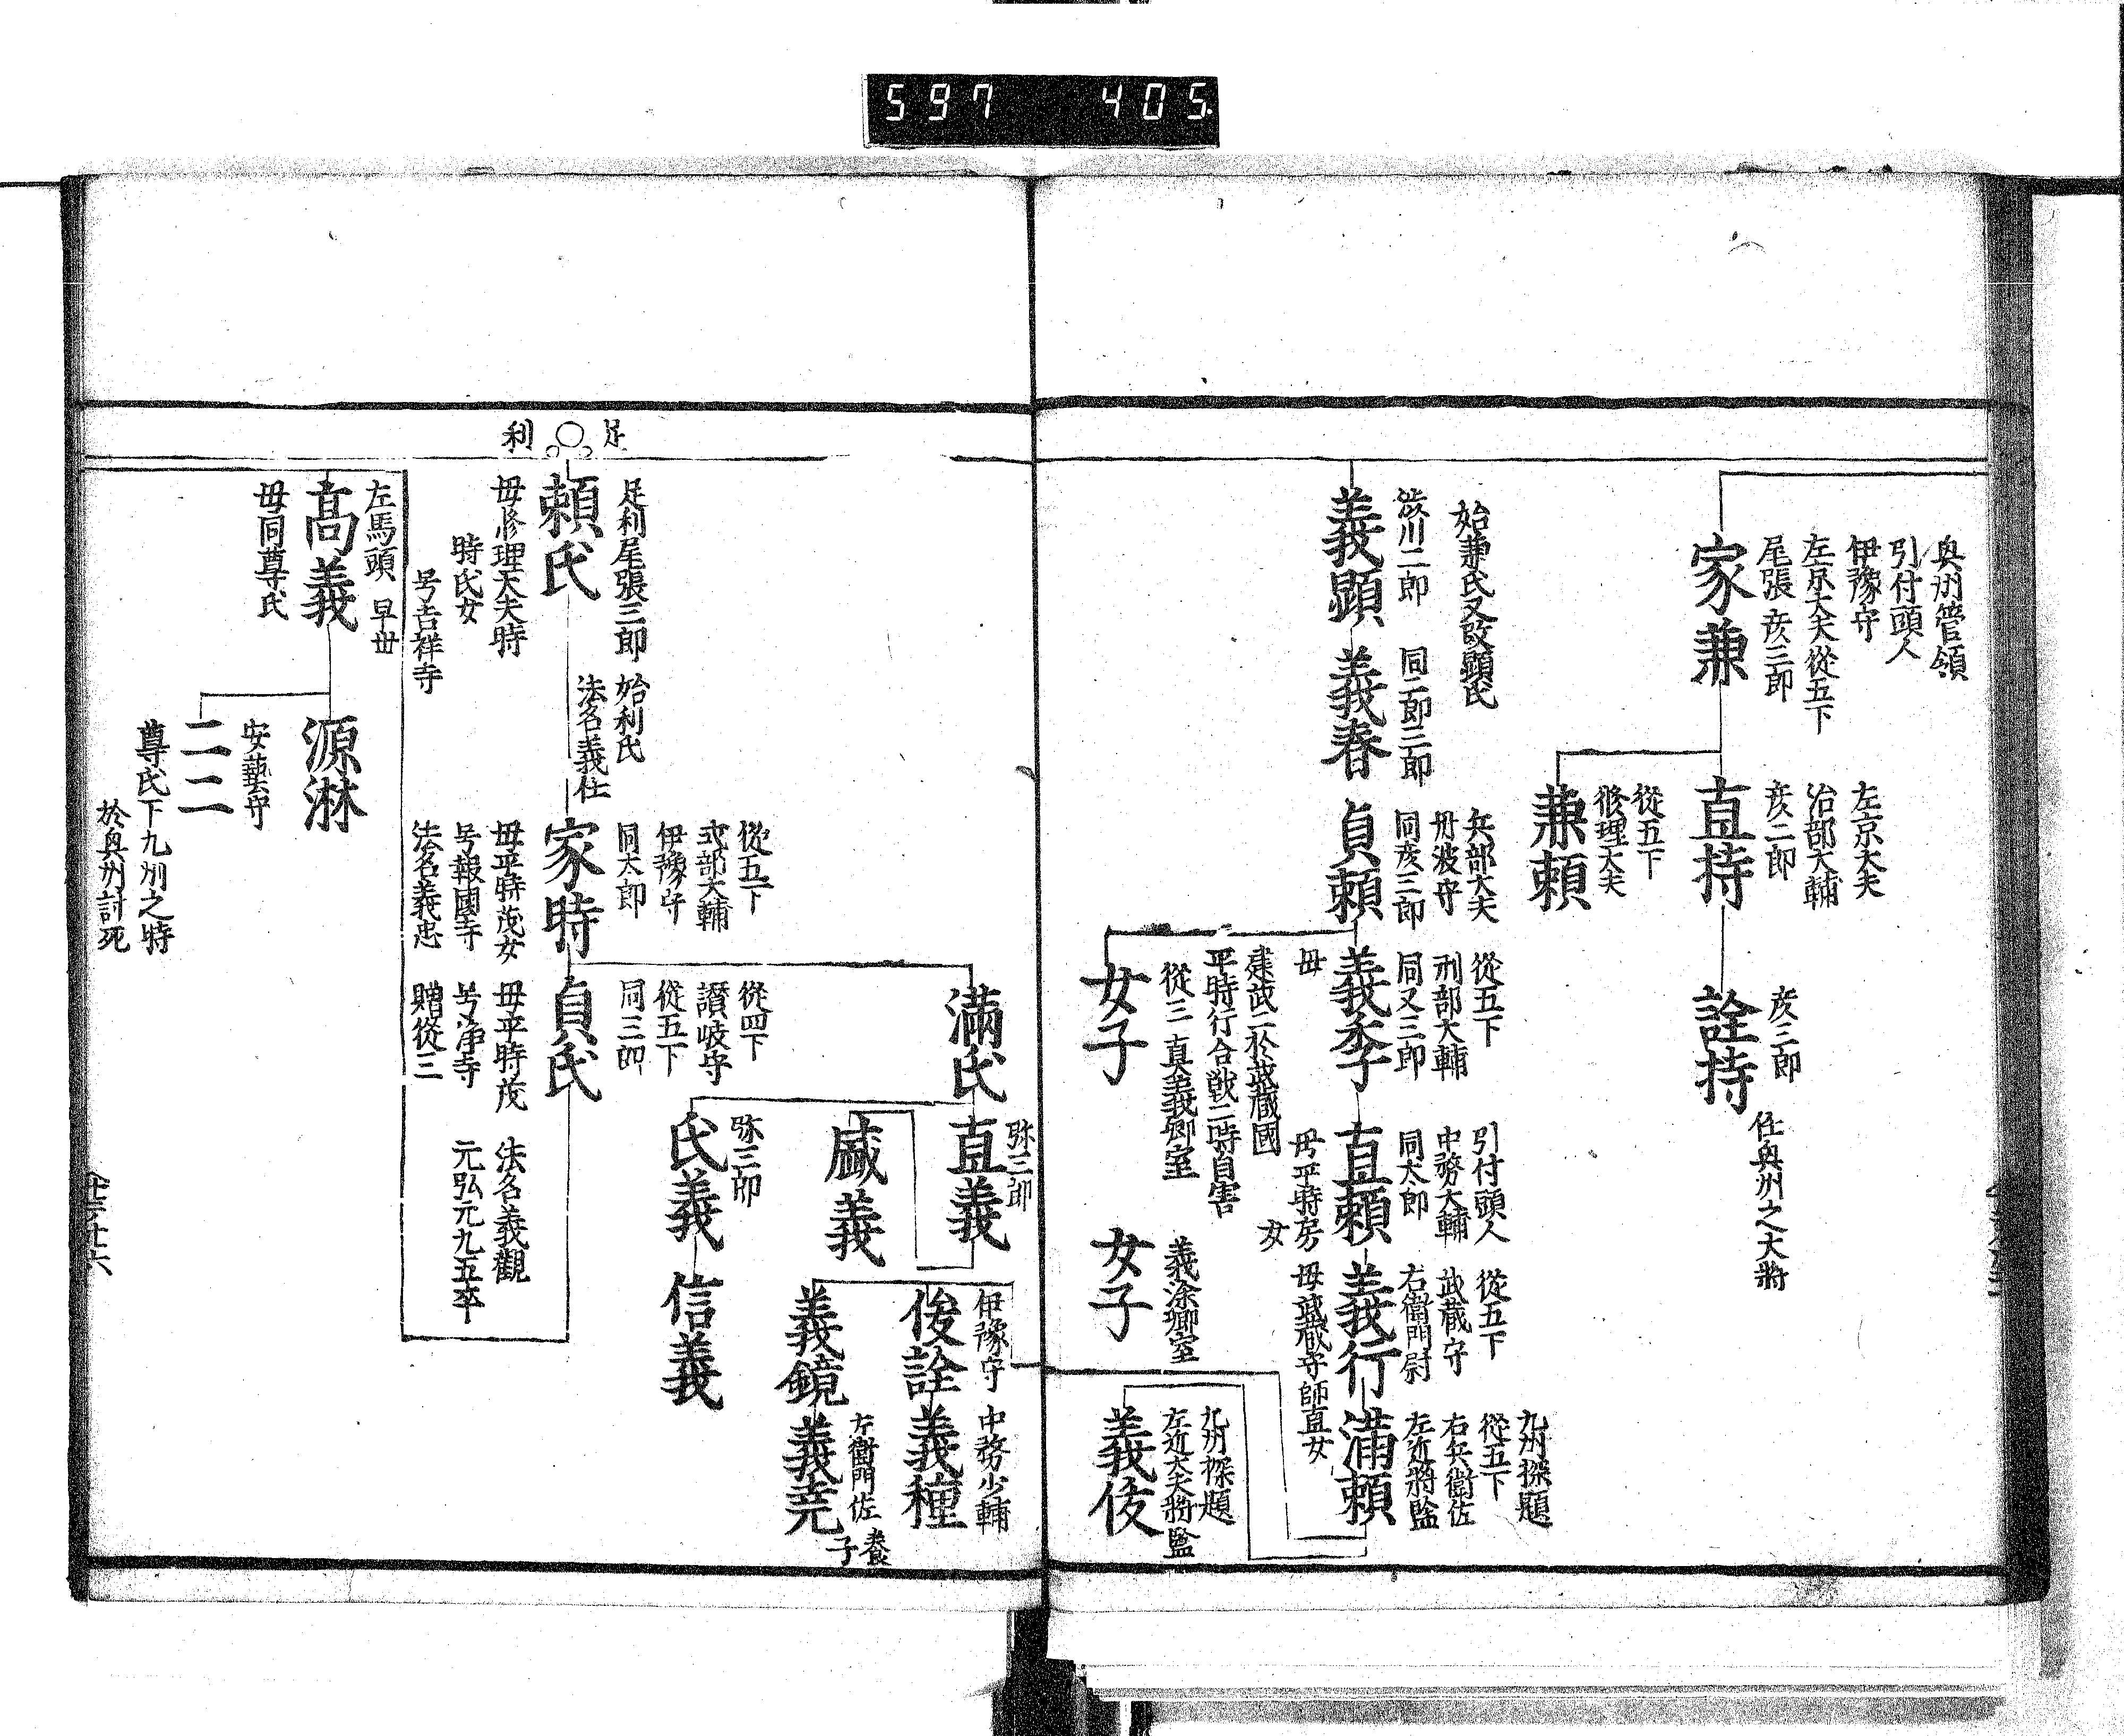 597 405
奥州管領
引付頭人
伊豫守
左京大夫從五下
尾張 彦三郎
家兼
左京大夫
治部大輔
彦二郎
直持
彦三郎
詮持
任奥州之大將
從五下
修理大夫
兼頼
始兼氏又改顕氏
渋川二郎
義顕
同二郎三郎
義春
兵部大夫
丹波守
同彦三郎
貞頼
從五下
刑部大輔
同又三郎
義季
毋
建武二於武蔵國
平時行合戦二時自害
引付頭人
中務大輔
同太郎
直頼
毋平時房
女
從五下
武蔵守
右衛門尉
義行
毋武蔵守師直女
九州探題
從五下
右兵衛佐
左近將監
満頼
從三 直義卿室
女子
義詮卿室
女子
九州探題
左近大夫將監
義俊
満氏
弥三郎
直義
伊豫守
俊詮
中務少輔
義種
義鏡
左衛門佐
養
子
義尭
盛義
弥三郎
氏義
信義
足
利
足利尾張三郎
始利氏
法名義任
頼氏
毋修理大夫時
時氏女
号吉祥寺
從五下
式部大輔
伊豫守
同太郎
家時
毋平時茂女
号報國寺
法名義忠
從四下
讃岐守
從五下
同三郎
貞氏
毋平時茂
号浄寺
贈從三
法名義觀
元弘元九五卒
左馬頭 早世
高義
毋同尊氏
源淋
安藝守
二二
尊氏下九州之時
於奥州討死